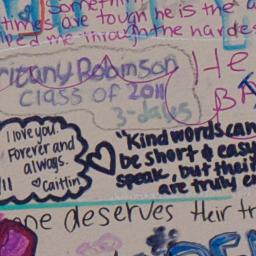 Somethin
times are tough he is the a
ped me through the hardes
He
rittany Robinson
Class of 2011
3-days
I love you.
Forever and
always.
♡Caitlin
"Kind words can
be short & easy
speak, but thei
are truly e
one deserves their tr